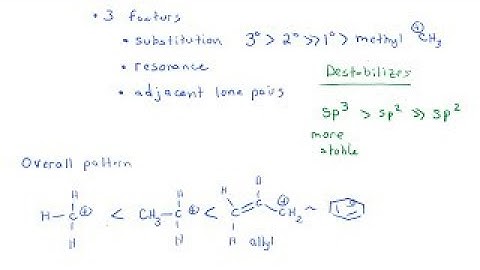 • 3 factors
• substitution 3° > 2° >> 1° > methyl ⊕CH3
• resonance
• adjacent lone pairs
Destabilizes
sp3 > sp2 >> sp2
more
stable
Overall pattern
H H H
H–C⊕ < CH3–C⊕ < C=C–CH2 ~
H H H allyl